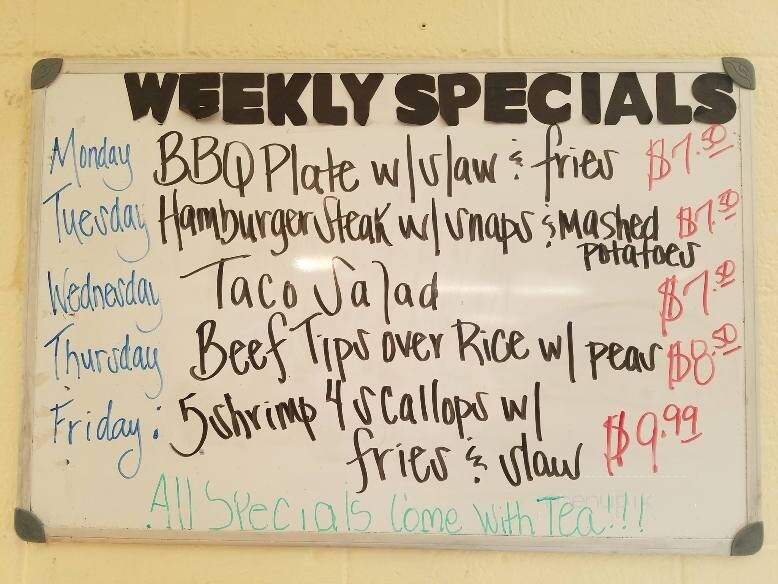 WEEKLY SPECIALS
Monday BBQ Plate w/slaw & fries $7.50
Tuesday Hamburger Steak w/ snaps & mashed $7.50
potatoes
Wednesday Taco Salad $7.50
Thursday Beef Tips over Rice w/ peas $8.50
Friday: 5 shrimp 4 scallops w/
fries & slaw $9.99
All Specials Come with Tea!!!